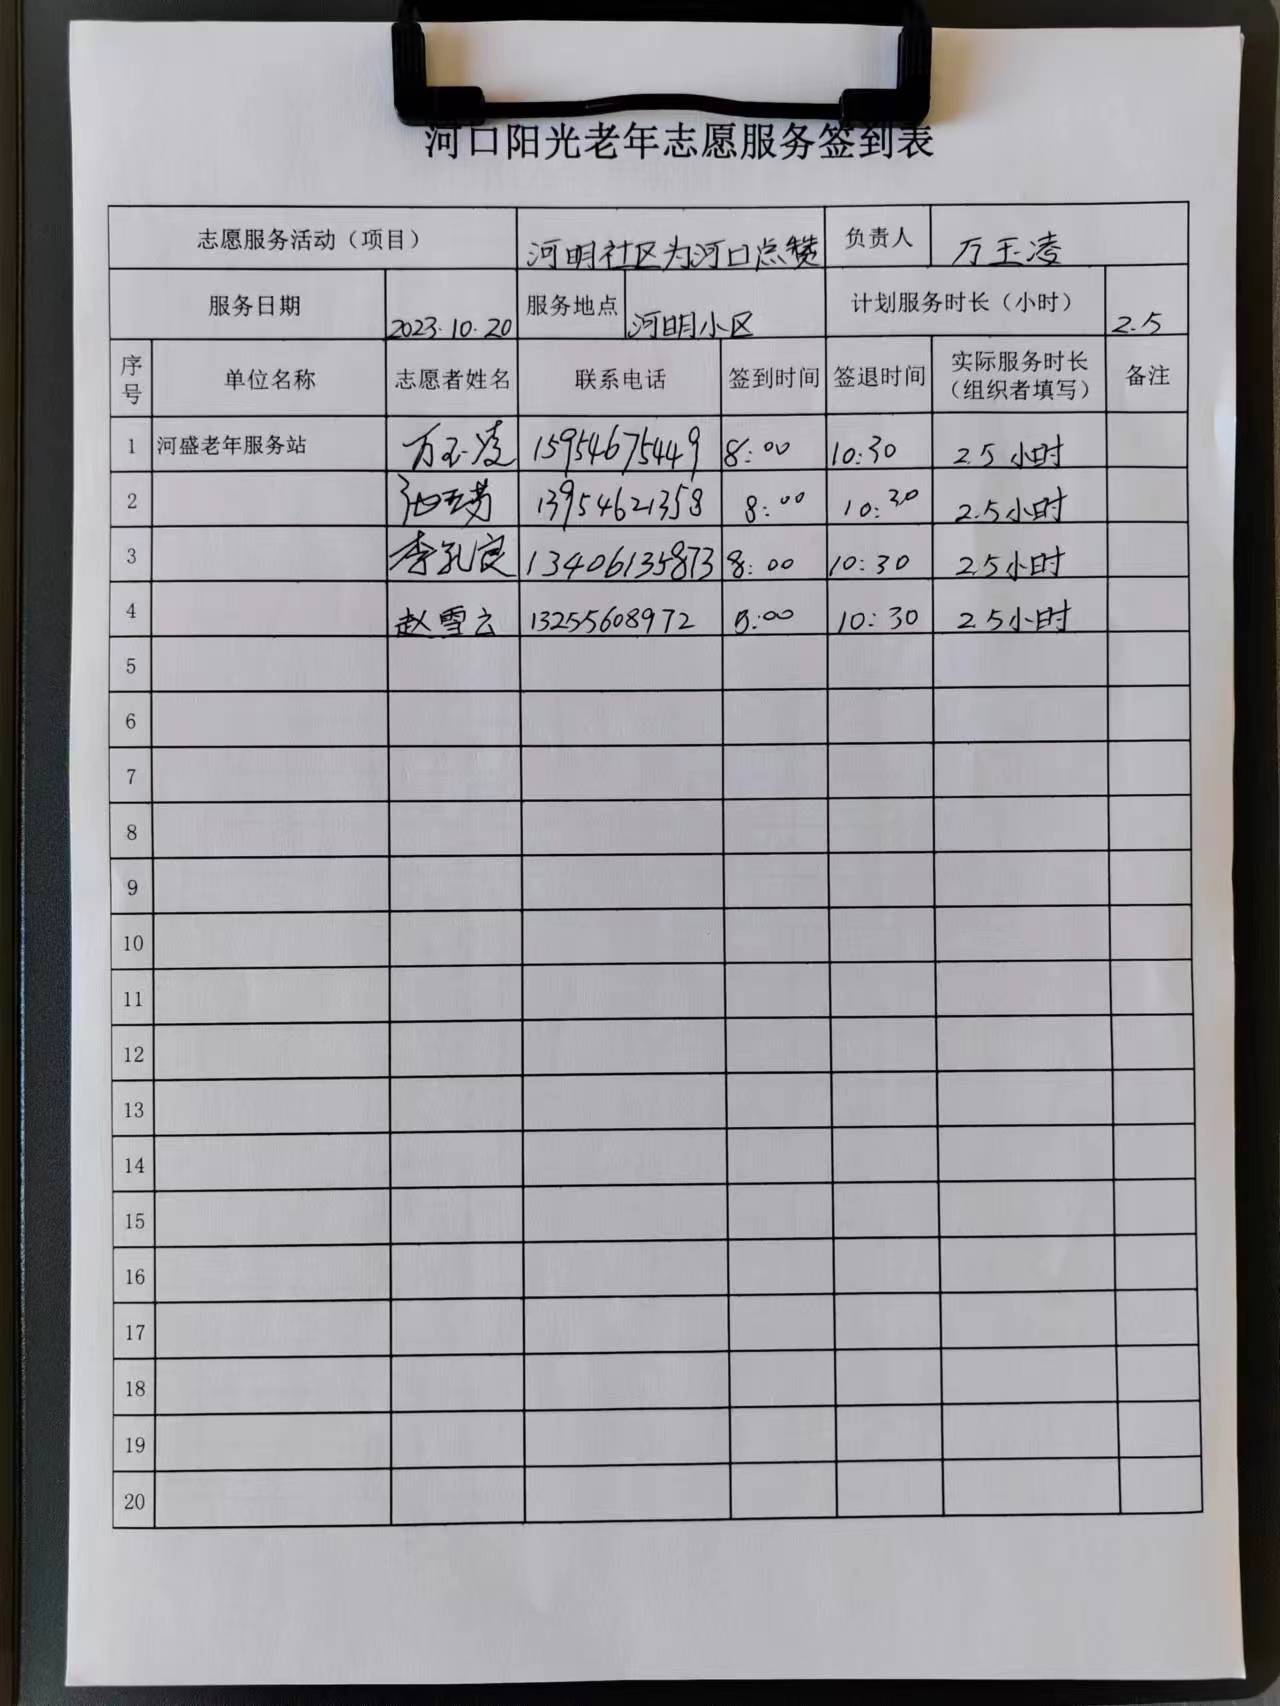 河口阳光老年志愿服务签到表
志愿服务活动（项目） 河明社区为河口点赞 负责人 万玉凌
服务日期 2023.10.20 服务地点 河明小区 计划服务时长（小时） 2.5
序号 单位名称 志愿者姓名 联系电话 签到时间 签退时间 实际服务时长（组织者填写） 备注
1 河盛老年服务站 万玉凌 15954675449 8:00 10:30 2.5小时
2 13954621358 8:00 10:30 2.5小时
3 李孔良 13406135873 8:00 10:30 2.5小时
4 赵雪云 13255608972 8:00 10:30 2.5小时
5
6
7
8
9
10
11
12
13
14
15
16
17
18
19
20